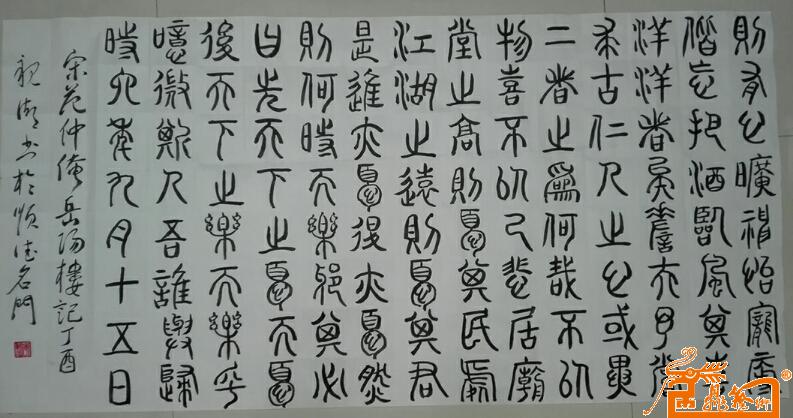 則有心曠神怡寵辱
偕忘把酒臨風其喜
洋洋者矣嗟夫予嘗
求古仁人之心或異
二者之為何哉不以
物喜不以己悲居廟
堂之高則憂其民處
江湖之遠則憂其君
是進亦憂退亦憂然
則何時而樂耶其必
曰先天下之憂而憂
後天下之樂而樂乎
噫微斯人吾誰與歸
時六年九月十五日
宋范仲淹岳陽樓記丁酉
書於順德名門